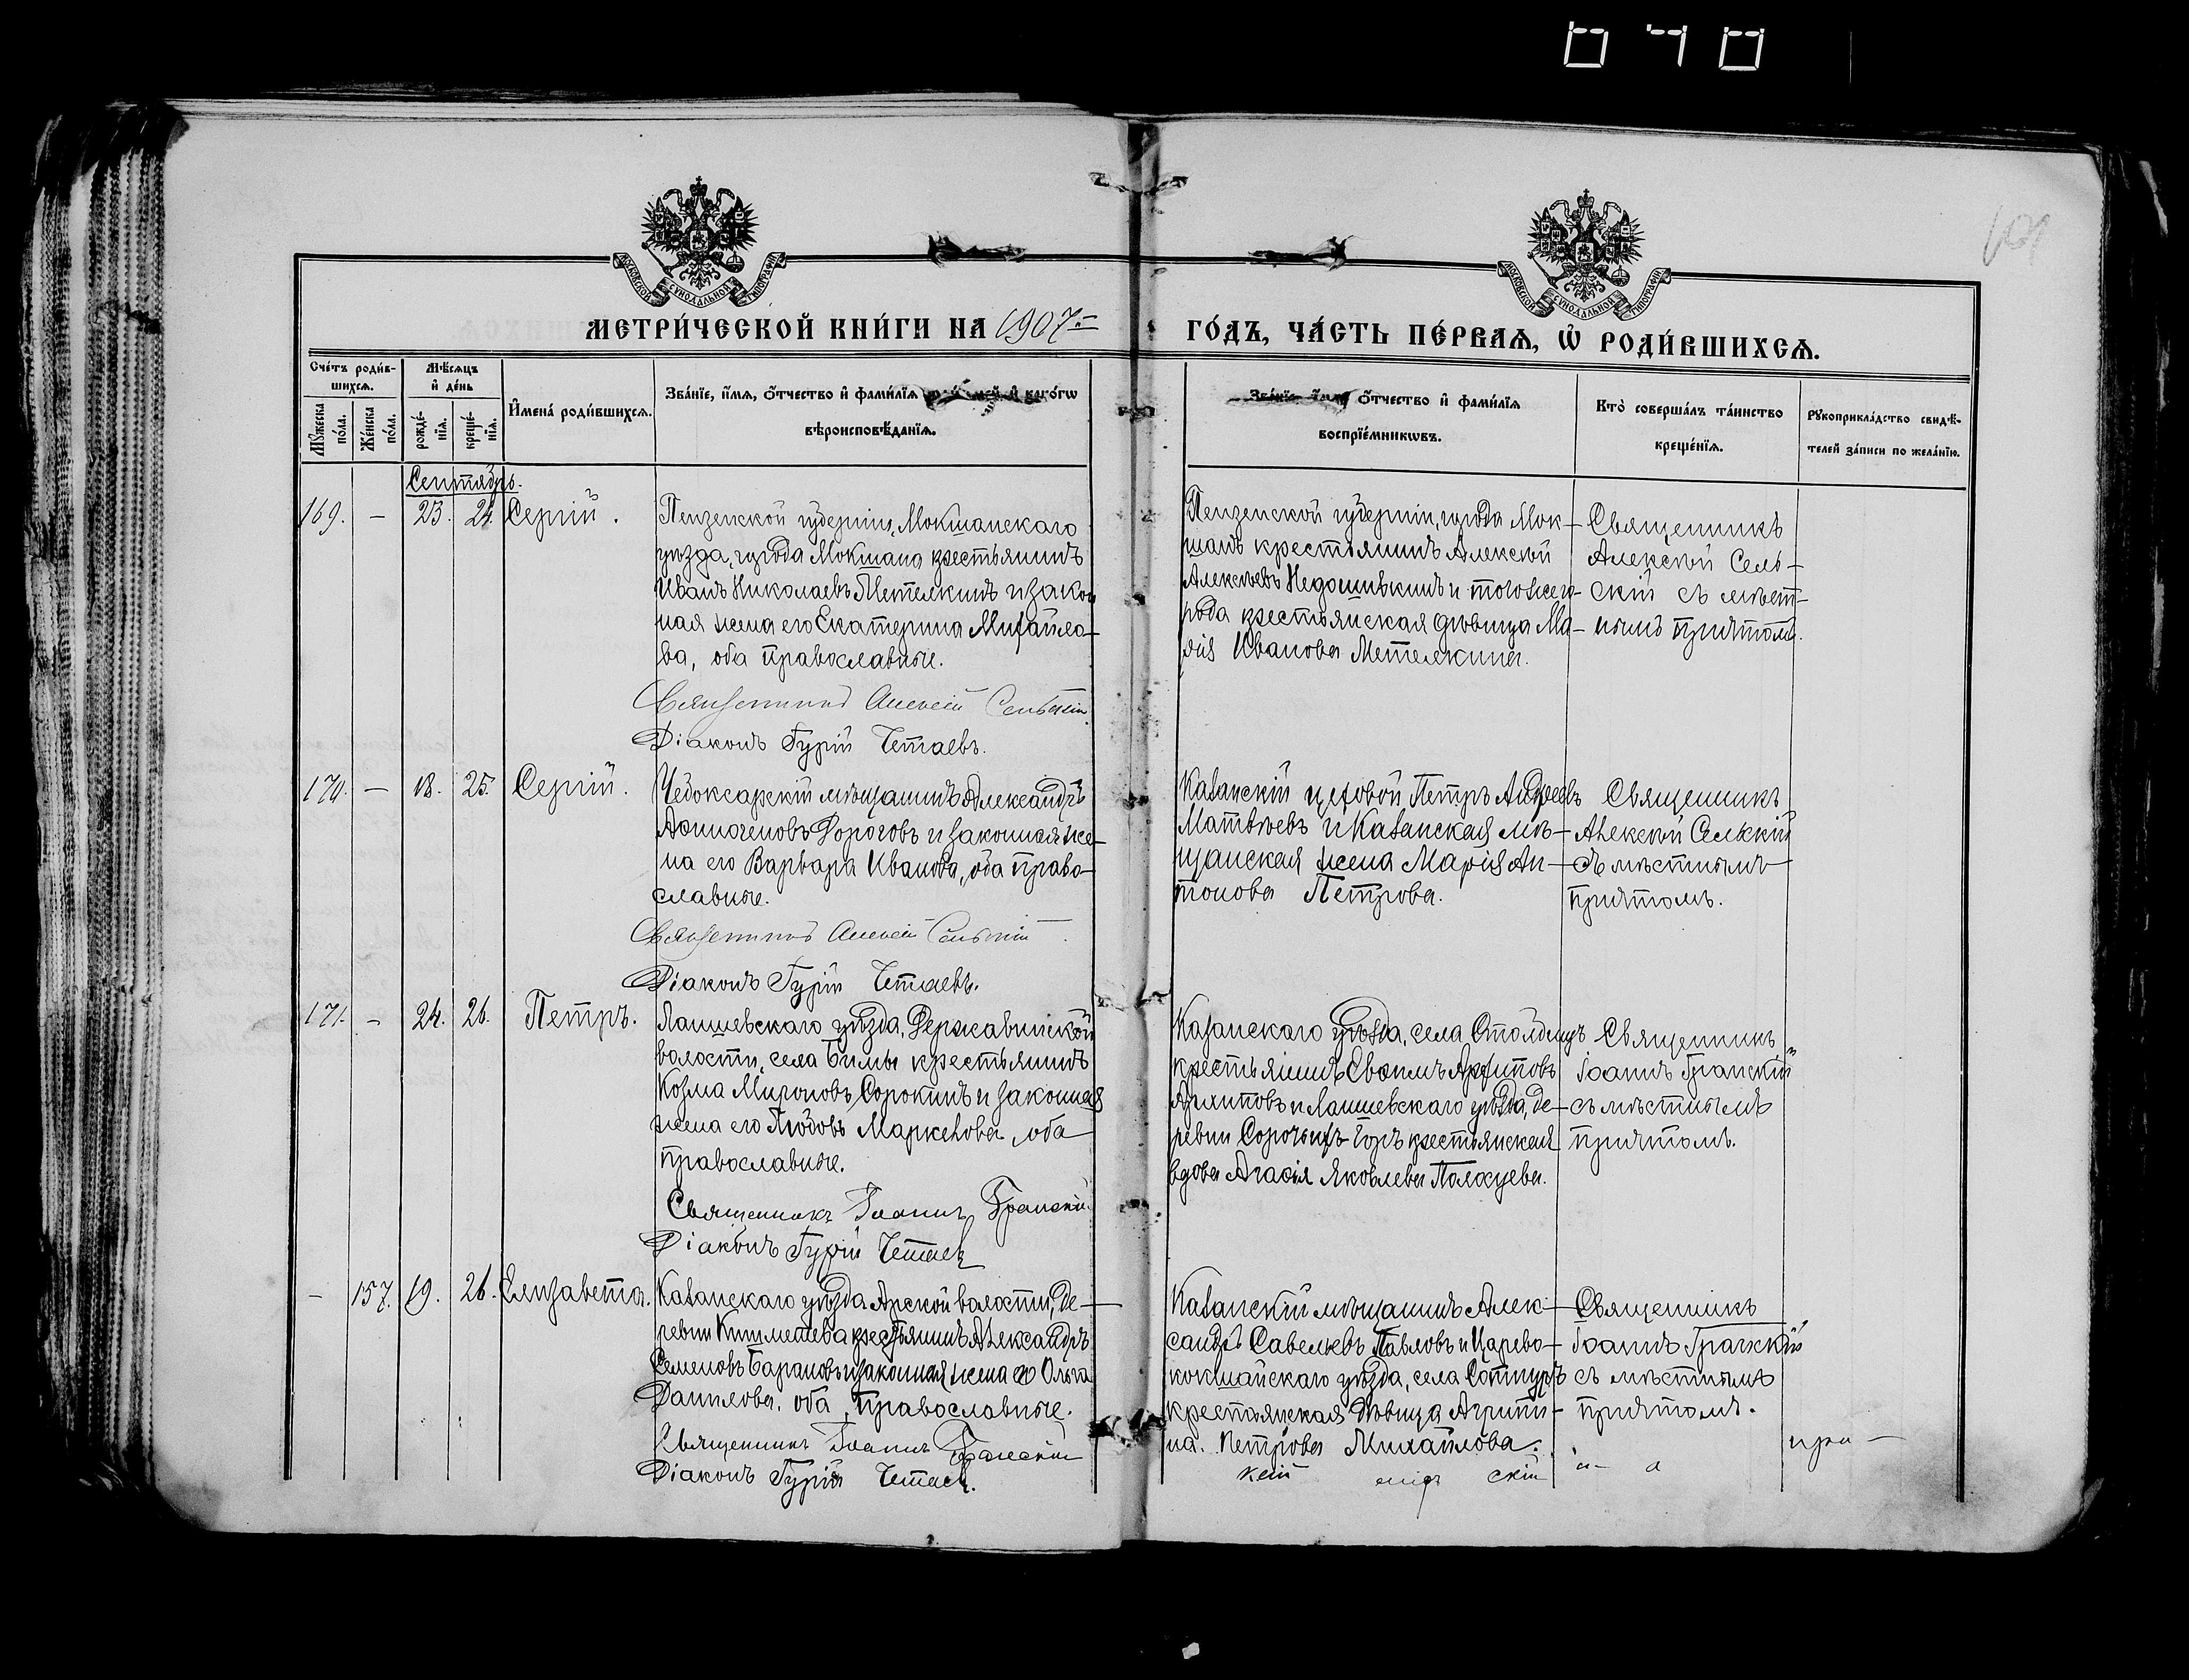 МОСКОВСКОЙ СѴНОДАЛЬНОЙ ТИПОГРАФІИ
МОСКОВСКОЙ СѴНОДАЛЬНОЙ ТИПОГРАФІИ
МЕТРИ́ЧЕСКОЙ КНИ́ГИ НА 1907 ГО́ДЪ, ЧА́СТЬ ПЕ́РВАѦ, Ѡ҆ РОДИ́ВШИХСѦ.
Сче́тъ роди́в-
шихсѧ.
Мꙋ́жеска по́ла.
Же́нска по́ла.
Мѣ́сѧцъ
и҆ де́нь
рожде́-
нїѧ.
креще́-
нїѧ.
И҆мена̀ роди́вшихсѧ.
Зва́нїе, и҆́мѧ, ѻ҆́тчество и҆ фами́лїѧ и҆ како́гѡ
вѣроисповѣ́данїѧ.
Зва́нїе, и҆́мѧ, ѻ҆́тчество и҆ фами́лїѧ
воспрїе́мникѡвъ.
Кто̀ соверша́лъ та́инство
креще́нїѧ.
Рꙋкоприкла́дство свидѣ́-
телей за́писи по жела́нїю.
Сентябрь.
169. — 23. 24. Сергій.
Пензенской губерніи, Мокшанскаго
уѣзда, города Мокшана крестьянинъ
Иванъ Николаевъ Метелкинъ и закон
ная жена его Екатерина Михайло-
ва, оба православные.
Священникъ Алексій Сельскій
Діаконъ Гурій Четаевъ.
Пензенской губерніи, города Мок-
шанъ крестьянинъ Алексѣй
Алексѣевъ Недошивкинъ и тогоже го-
рода крестьянская дѣвица Ма-
рія Иванова Метелкина.
Священникъ
Алексій Сель-
скій съ мѣст-
нымъ причтомъ.
170. — 18. 25. Сергій.
Чебоксарскій мѣщанинъ Александръ
Аѳиногеновъ Дороговъ и законная же-
на его Варвара Иванова, оба право-
славные.
Священникъ Алексій Сельскій
Діаконъ Гурій Четаевъ.
Казанскій цеховой Петръ Андреевъ
Матвѣевъ и Казанская мѣ-
щанская жена Марія Ан-
тонова Петрова.
Священникъ
Алексій Сельскій
съ мѣстнымъ
причтомъ.
171. — 24. 26. Петръ.
Лаишевскаго уѣзда, Державинской
волости, села Бимы крестьянинъ
Козма Мироновъ Сорокинъ и законная
жена его Любовь Маркелова, оба
православные.
Священникъ Іоаннъ Гранскій
Діаконъ Гурій Четаевъ
Казанскаго уѣзда, села Столбищъ
крестьянинъ Евѳимъ Архиповъ
Архиповъ и Лаишевскаго уѣзда, де-
ревни Сорочьихъ Горъ крестьянская
вдова Агаѳія Яковлева
Священникъ
Іоаннъ Гранскій
съ мѣстнымъ
причтомъ.
— 157. 19. 26. Елизавета.
Казанскаго уѣзда Арской волости, де-
ревни крестьянинъ Александръ
Семеновъ Барановъ и законная жена его Ольга
Данилова, оба православные.
Священникъ Іоаннъ Гранскій
Діаконъ Гурій Четаевъ.
Казанскій мѣщанинъ Алек-
сандръ Савельевъ Павловъ и Царево-
кокшайскаго уѣзда, села Сотнуръ
крестьянская дѣвица Агрипи-
на Петрова Михайлова.
Священникъ
Іоаннъ Гранскій
съ мѣстнымъ
причтомъ.